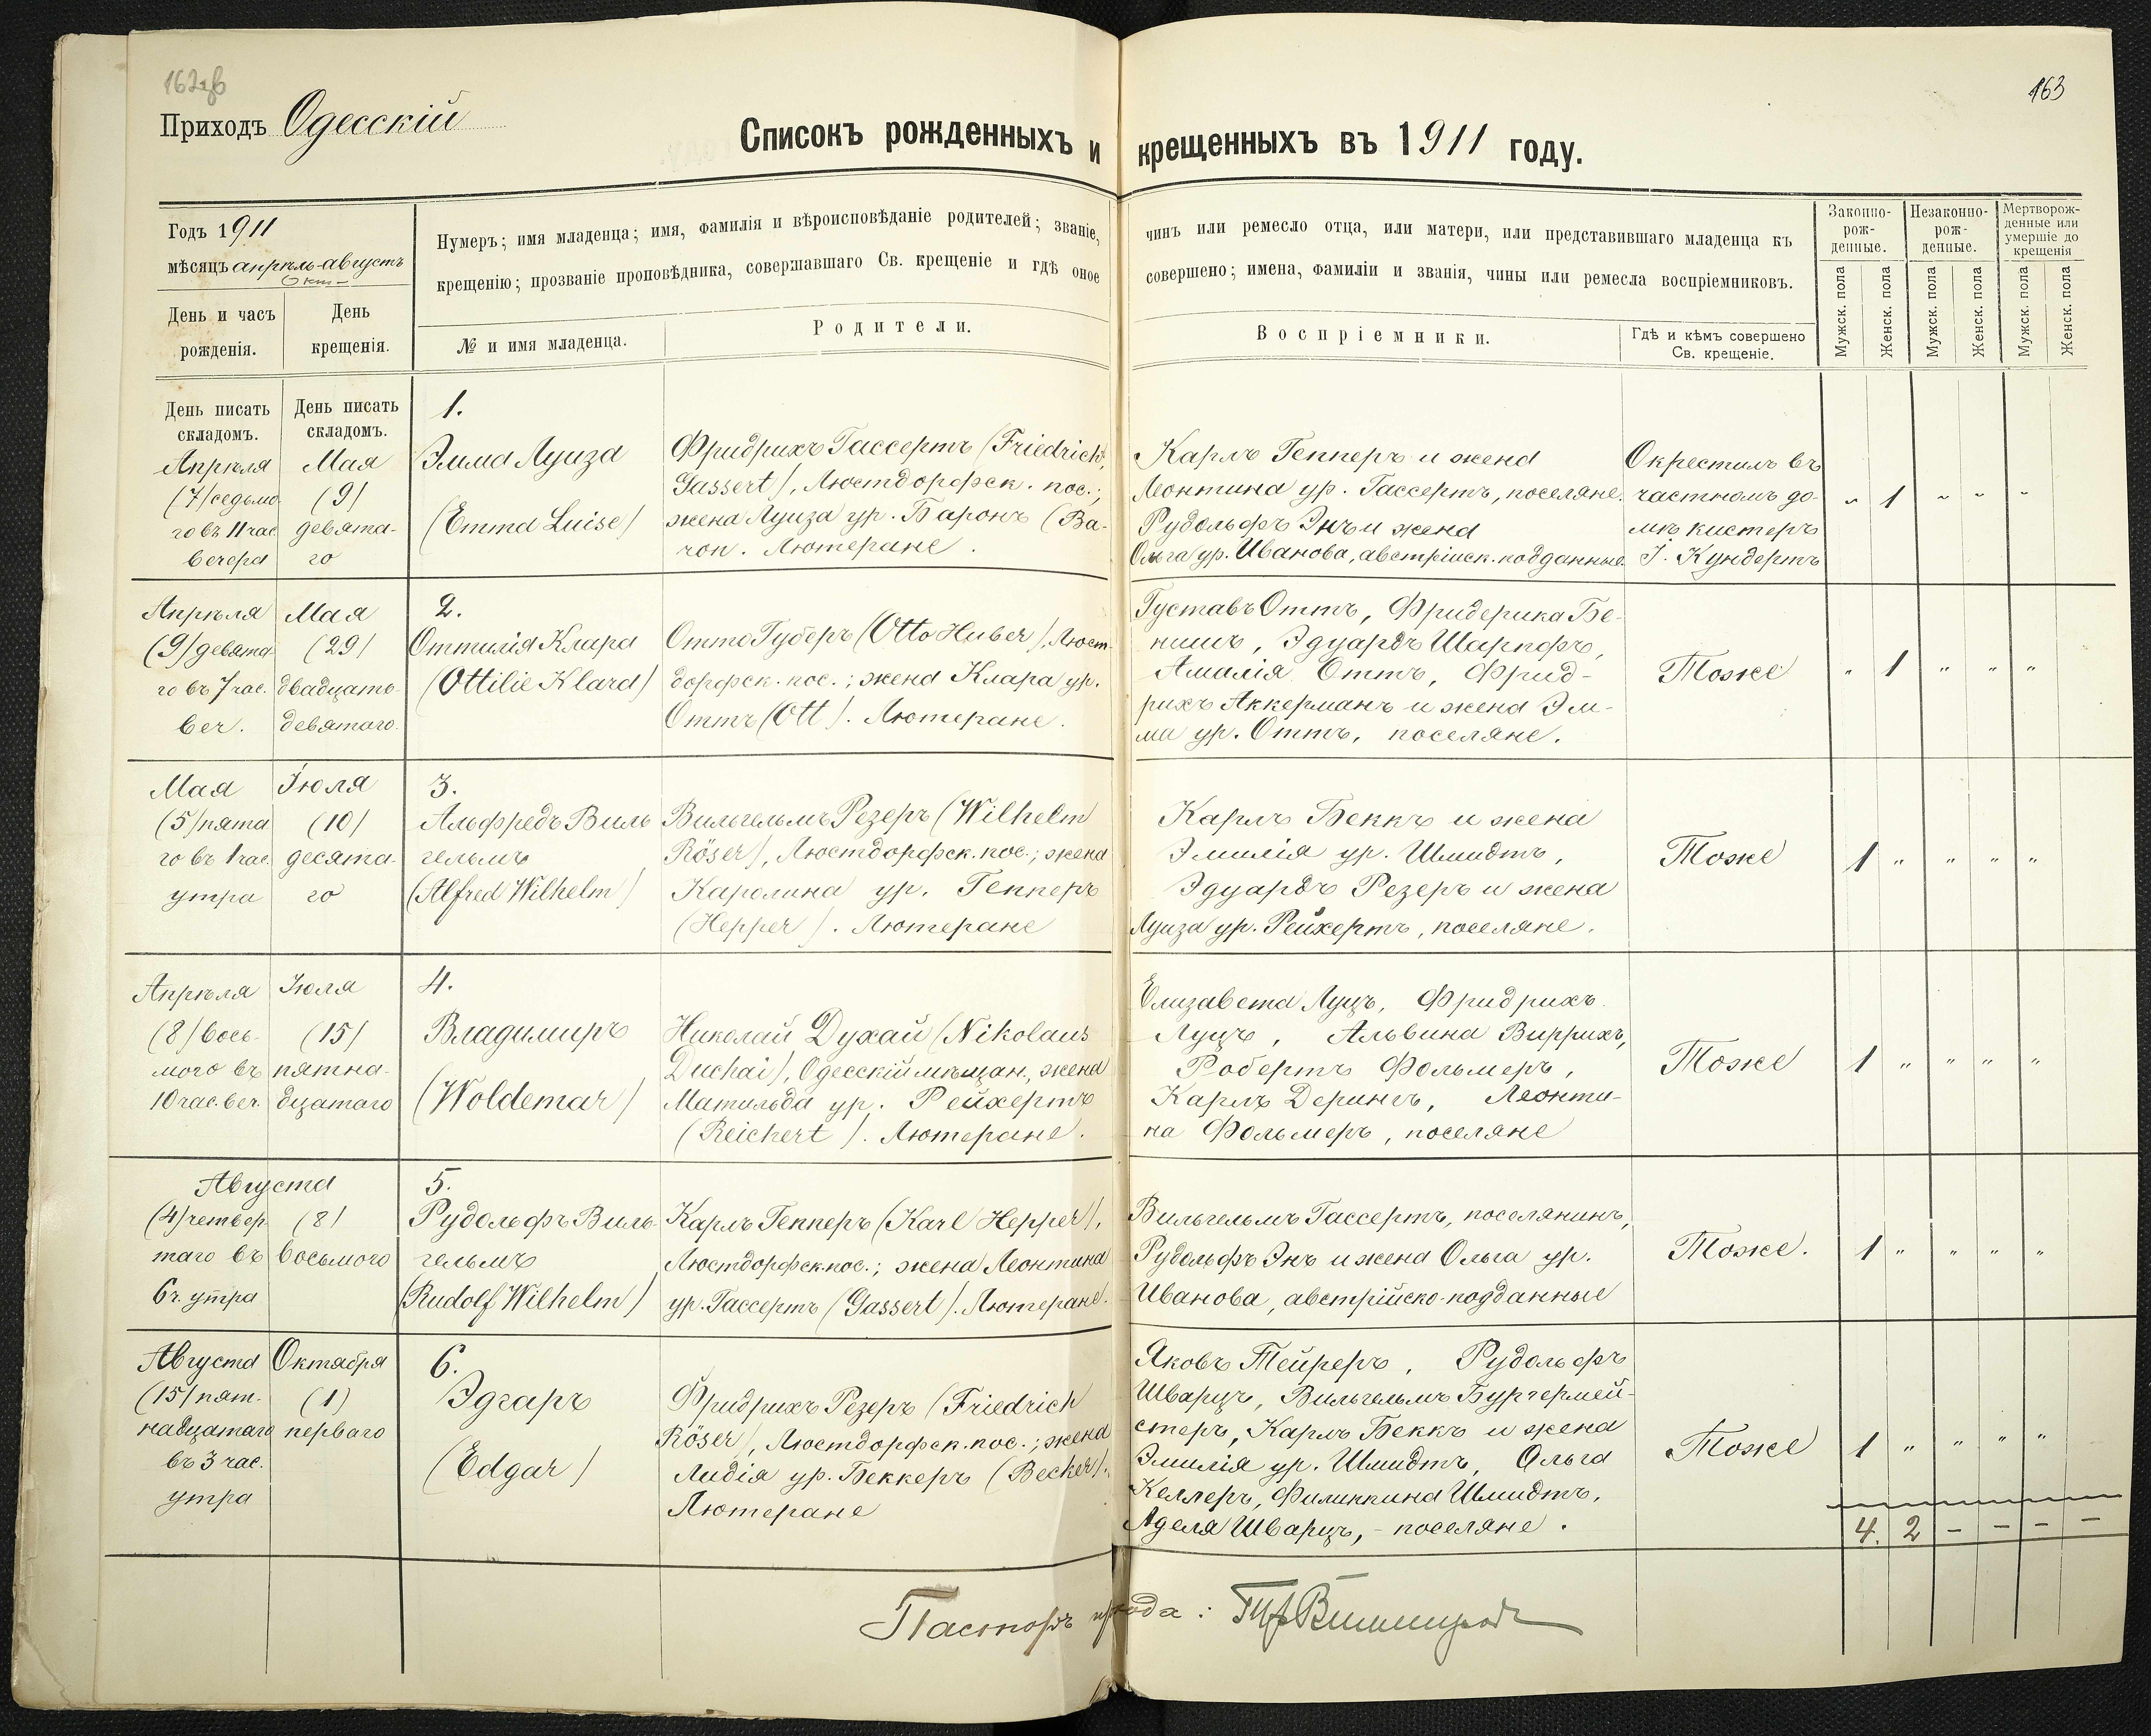 163
Приходъ Одесскій
Списокъ рожденныхъ и крещенныхъ въ 1911 году.
Годъ 1911
мѣсяцъ апрѣль-августъ
Окт-
День и часъ
рожденія.
День
крещенія.
Нумеръ; имя младенца; имя, фамилія и вѣроисповѣданіе родителей; званіе, чинъ или ремесло отца, или матери, или представившаго младенца къ
крещенію; прозваніе проповѣдника, совершавшаго Св. крещеніе и гдѣ оное совершено; имена, фамиліи и званія, чины или ремесла воспріемниковъ.
№ и имя младенца.
Родители.
Воспріемники.
Гдѣ и кѣмъ совершено
Св. крещеніе.
Законно-
рож-
денные.
Незаконно-
рож-
денные.
Мертворож-
денные или
умершіе до
крещенія
Мужск. пола
Женск. пола
Мужск. пола
Женск. пола
Мужск. пола
Женск. пола
День писать
складомъ.
Апрѣля
(7) седьмо
го въ 11 час.
вечера
День писать
складомъ.
Мая
(9)
девята-
го
1.
Эмма Луиза
(Emma Luise)
Фридрихъ Гассертъ (Friedrich
Gassert), Люстдорфск. пос.;
жена Луиза ур. Баронъ (Ba-
ron. Лютеране.
Карлъ Гепперъ и жена
Леонтина ур. Гассертъ, поселяне.
Рудольфъ Энъ и жена
Ольга ур. Иванова, австрійск. подданные.
Окрестилъ въ
частномъ до-
мѣ кистеръ
І. Кундертъ
" 1 " " "
Апрѣля
(9) девята-
го въ 7 час.
веч.
Мая
(29)
двадцать
девятого.
2.
Оттилія Клара
(Ottilie Klara)
Отто Губеръ (Otto Huber), Люст-
дорфск. пос.; жена Клара ур.
Оттъ (Ott). Лютеране.
Густавъ Оттъ, Фридерика Бе-
нишъ, Эдуардъ Шарпфъ,
Амалія Оттъ, Фрид-
рихъ Аккерманъ и жена Эм-
ма ур. Оттъ, поселяне.
Тоже
" 1 " " "
Мая
(5) пята
го въ 1 час.
утра
Іюля
(10)
десята-
го
3.
Альфредъ Виль
гельмъ
(Alfred Wilhelm)
Вильгельмъ Резеръ (Wilhelm
Röser), Люстдорфск. пос.; жена
Каролина ур. Гепперъ
(Hepper). Лютеране
Карлъ Беккъ и жена
Эмилія ур. Шмидтъ,
Эдуардъ Резеръ и жена
Луиза ур. Рейхертъ, поселяне.
Тоже
1 " " " "
Апрѣля
(8) вось-
мого въ
10 час. веч.
Іюля
(15)
пятна-
дцатаго
4.
Владимиръ
(Woldemar)
Николай Духай (Nikolaus
Duchai), Одесскій мѣщан., жена
Матильда ур. Рейхертъ
(Reichert). Лютеране.
Елизавета Луцъ, Фридрихъ
Луцъ, Альвина Виррихъ,
Робертъ Фольмеръ,
Карлъ Дерингъ, Леонти-
на Фольмеръ, поселяне
Тоже
1 " " " "
Августа
(4) четвер-
таго въ
6 ч. утра
(8)
восьмого
5.
Рудольфъ Виль-
гельмъ
(Rudolf Wilhelm)
Карлъ Гепперъ (Karl Hepper),
Люстдорфск. пос.; жена Леонтина
ур. Гассертъ (Gassert). Лютеране.
Вильгельмъ Гассертъ, поселянинъ,
Рудольфъ Энъ и жена Ольга ур.
Иванова, австрійско-подданные
Тоже.
1 " " " "
Августа
(15) пят-
надцатаго
въ 3 час.
утра
Октября
(1)
перваго
6.
Эдгаръ
(Edgar)
Фридрихъ Резеръ (Friedrich
Röser), Люстдорфск. пос.; жена
Лидія ур. Беккеръ (Becker).
Лютеране
Яковъ Тейреръ, Рудольфъ
Шварцъ, Вильгельмъ Бургермей-
стеръ, Карлъ Беккъ и жена
Эмилія ур. Шмидтъ, Ольга
Келлеръ, Филиппина Шмидтъ,
Аделя Шварцъ, - поселяне.
Тоже
1 " " " "
4. 2 - - - -
Пасторъ прихода: